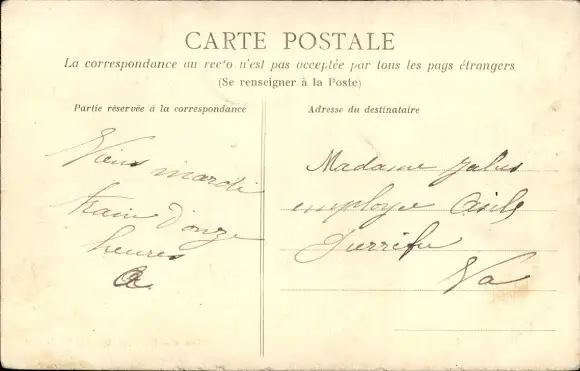 CARTE POSTALE
La correspondance au recto n'est pas acceptée par tous les pays étrangers
(Se renseigner à la Poste)
Partie réservée à la correspondance
Adresse du destinataire
mardi
train d'onze
heures
Madame Jules
employée Asile